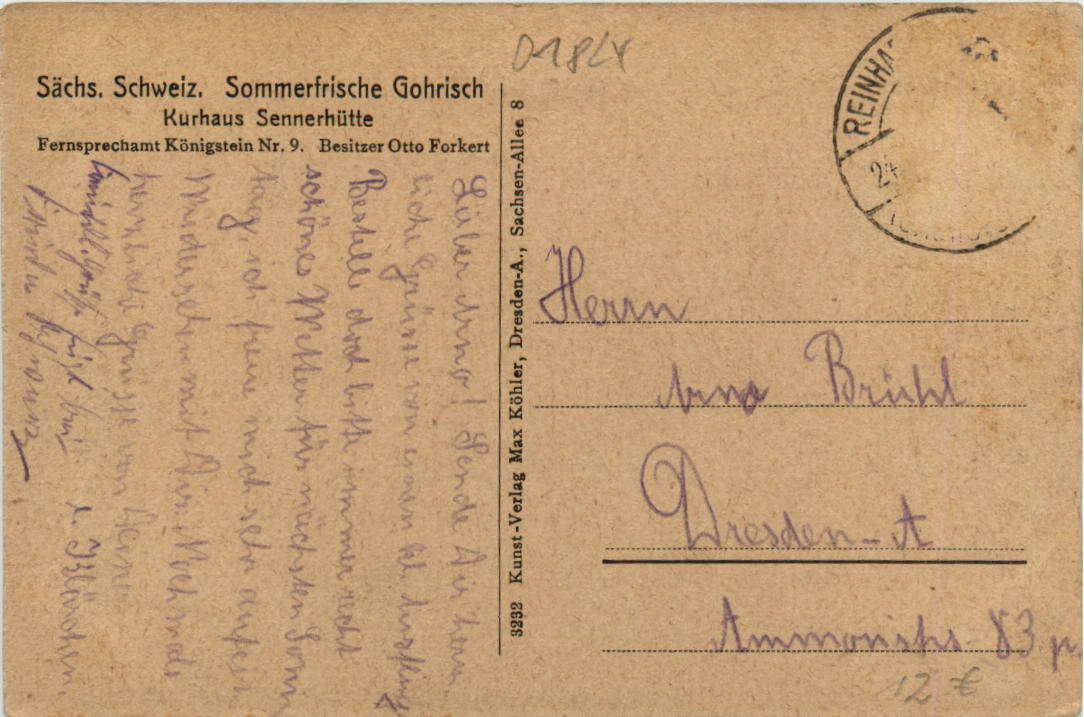 Sächs. Schweiz. Sommerfrische Gohrisch
Kurhaus Sennerhütte
Fernsprechamt Königstein Nr. 9. Besitzer Otto Forkert
Lieber Arno! Sende Dir herz-
liche Grüsse von einem kl. Ausflug
Bestelle doch bitte immer recht
schönes Wetter für nächsten Sonn
tag, ich freue mich sehr auf ein
Wiedersehn mit Dir. Nochmals
herzliche Grüsse von Deinem
3232 Kunst-Verlag Max Köhler, Dresden-A., Sachsen-Allee 8
D1824
REINHA
24
Herrn
Arno Brühl
Dresden-A
Ammonstr. 83 p.
12 €